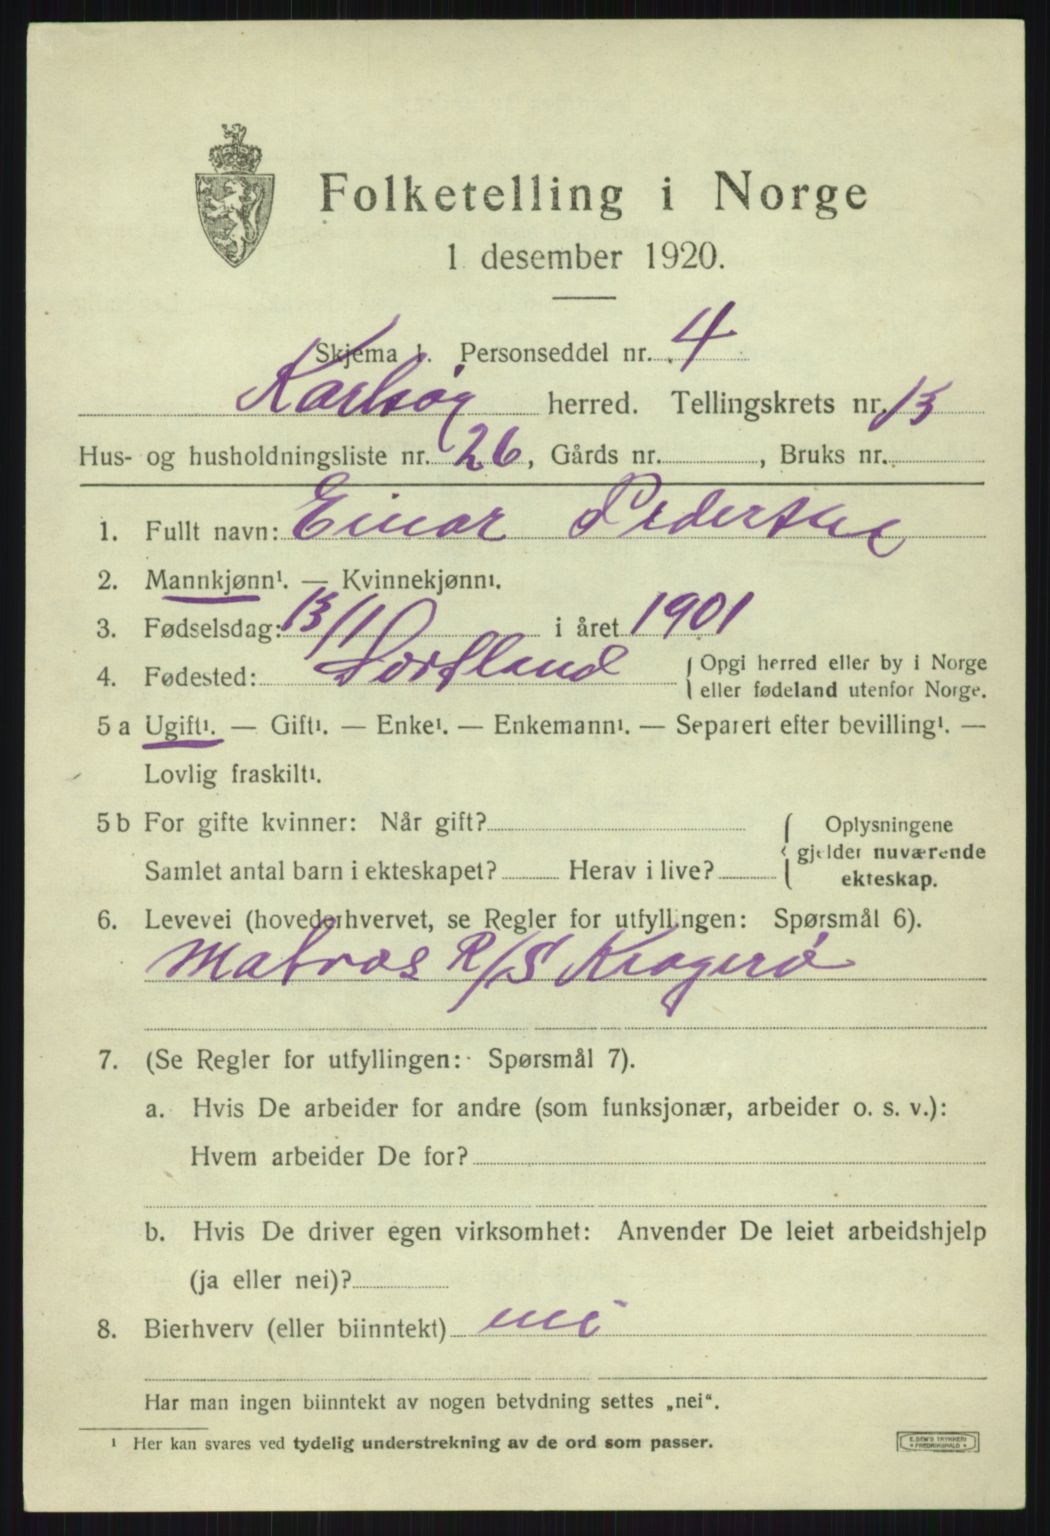 Folketelling i Norge
1. desember 1920.
Skjema 1. Personseddel nr. 4
Karlsøy herred. Tellingskrets nr. 13
Hus- og husholdningsliste nr. 26, Gårds nr. , Bruks nr.
1. Fullt navn: Einar Pedersen
2. Mannkjønn¹. — Kvinnekjønn¹.
3. Fødselsdag: 13/1 i året 1901
4. Fødested: Sortland { Opgi herred eller by i Norge
eller fødeland utenfor Norge.
5 a Ugift¹. — Gift¹. — Enke¹. — Enkemann¹. — Separert efter bevilling¹. —
Lovlig fraskilt¹.
5 b For gifte kvinner: Når gift? { Oplysningene
gjelder nuværende
Samlet antal barn i ekteskapet? Herav i live?
ekteskap.
6. Levevei (hovederhvervet, se Regler for utfyllingen: Spørsmål 6).
Matros R/S Kragerø
7. (Se Regler for utfyllingen: Spørsmål 7).
a. Hvis De arbeider for andre (som funksjonær, arbeider o. s. v.):
Hvem arbeider De for?
b. Hvis De driver egen virksomhet: Anvender De leiet arbeidshjelp
(ja eller nei)?
8. Bierhverv (eller biinntekt) nei
Har man ingen biinntekt av nogen betydning settes „nei“.
¹ Her kan svares ved tydelig understrekning av de ord som passer.
E. SEM'S TRYKKERI
• FREDRIKSHALD •